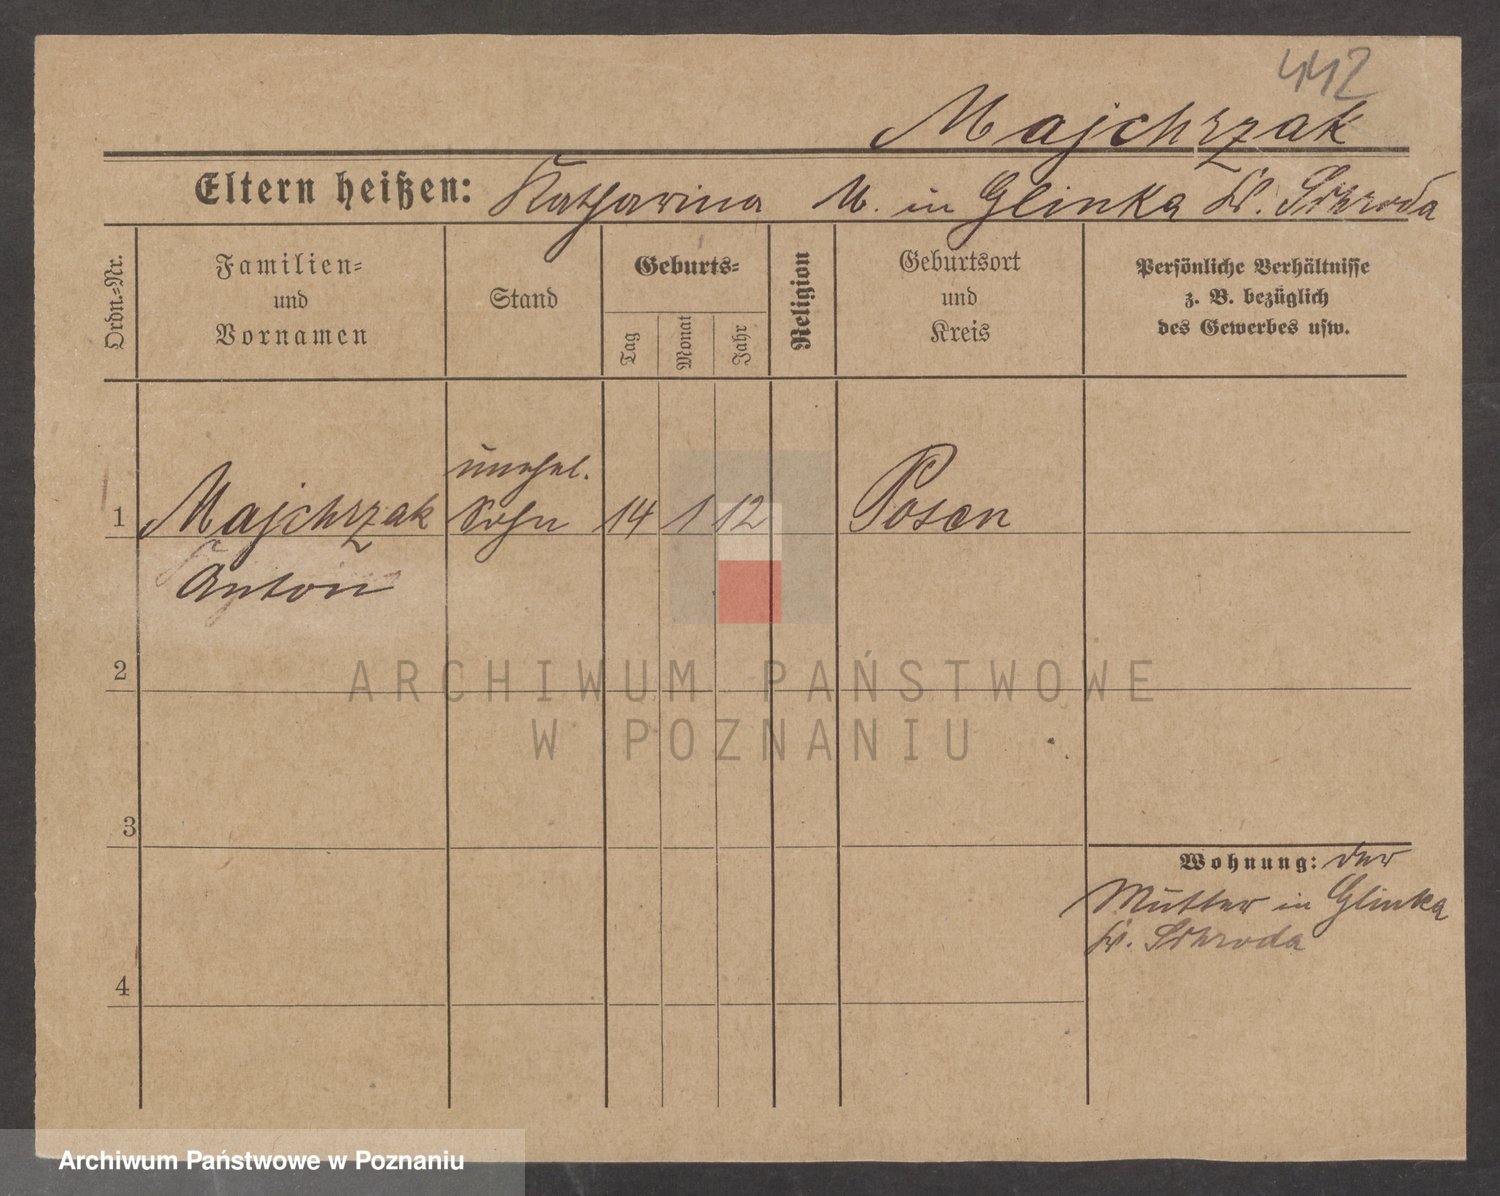 442
Majchrzak
Eltern heißen: Katharina M. in Glinka Kr. Schroda
Ordn.-Nr.
Familien-
und
Vornamen
Stand
Geburts-
Tag
Monat
Jahr
Religion
Geburtsort
und
Kreis
Persönliche Verhältnisse
z. B. bezüglich
des Gewerbes usw.
unehel.
1 Majchrzak Sohn 14 1 12 Posen
Anton
2
ARCHIWUM PAŃSTWOWE
W POZNANIU
3
Wohnung: der
Mutter in Glinka
Kr. Schroda
4
Archiwum Państwowe w Poznaniu